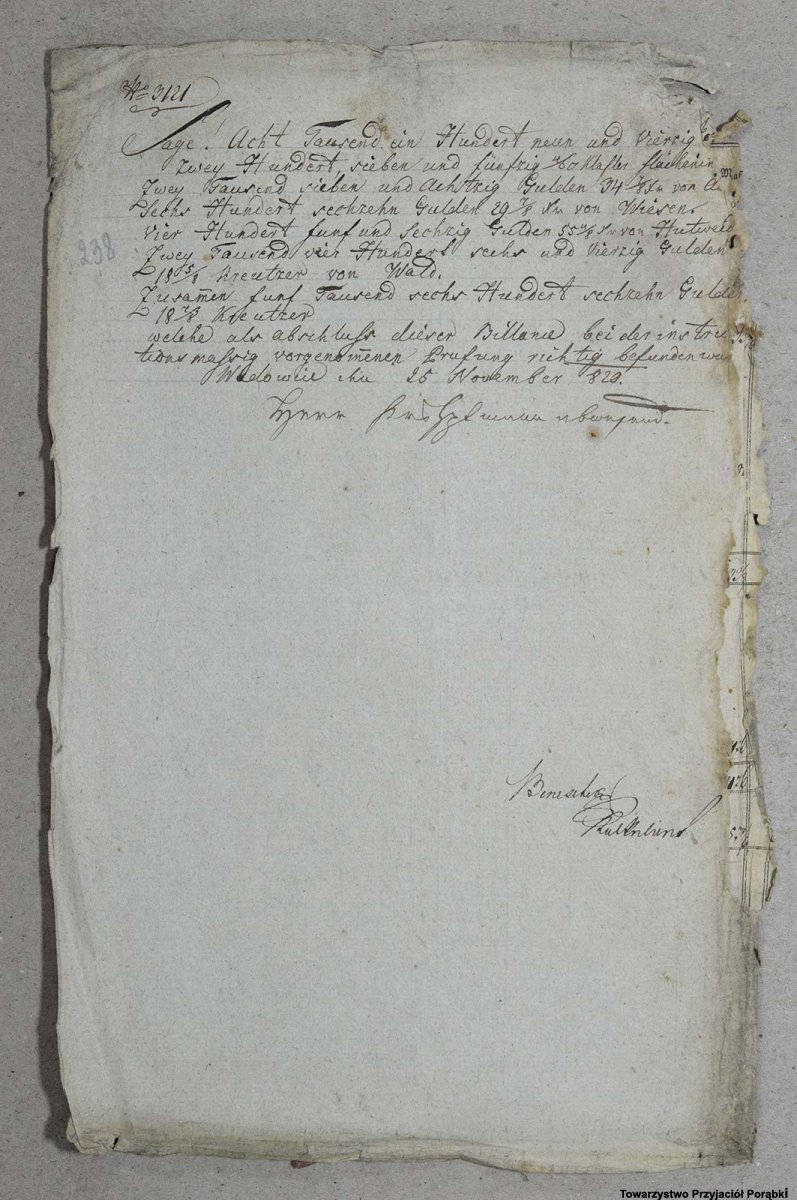 No 3121
Sage! Acht Tausend ein Hundert neun und Vierzig
Zwey Hundert sieben und fünfzig Klafter
Zwey Tausend sieben und Achtzig Gulden 34 von
Sechs Hundert sechzehn Gulden 29 7/8 Xr von Wiesen.
Vier Hundert funf und sechzig Gulden 55 von Hutweid
Zwey Tausend vier Hundert sechs und Vierzig Gulden
18 5/8 Kreutzer von Wald.
Zusam̄en funf Tausend sechs Hundert sechzehn Gulden
18 7/8 Kreutzer
welche als abschluss dieser Billance bei der instru
tionsmassig vorgenom̄enen Prufung richtig befunden
25 November 820.
Herr abwesend.
238
Towarzystwo Przyjaciół Porąbki